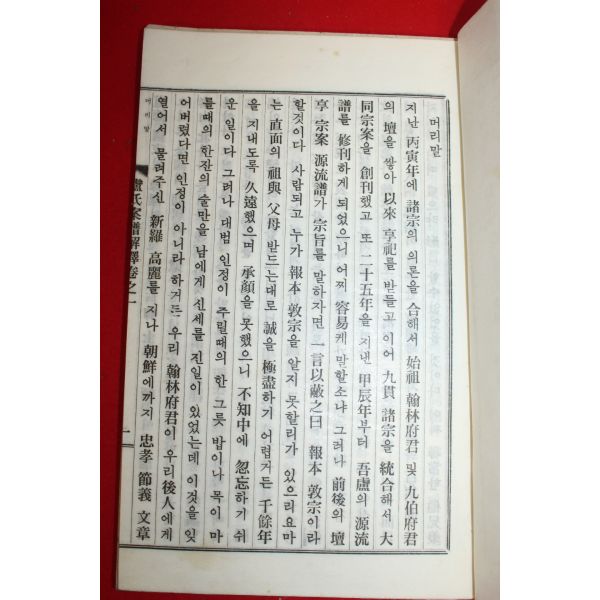 머리말
지난 丙寅年에 諸宗의 의론을 合해서 始祖 翰林府君 및 九伯府君
의 壇을 쌓아 以來 享祀를 받들고 이어 九貫 諸宗을 統合해서 大
同宗案을 創刊했고 또 二十五年을 지낸 甲辰年부터 吾盧의 源流
譜를 修刊하게 되었으니 어찌 容易케 말할소냐 그러나 前後의 壇
享 宗案 源流譜가 宗旨를 말하자면 一言以蔽之曰 報本 敦宗이라
할것이다 사람되고 누가 報本 敦宗을 알지 못할리가 있으리요마
는 直面의 祖與 父母 받드는대로 誠을 極盡하기 어렵거든 千餘年
을 지내도록 久遠했으며 承顔을 못했으니 不知中에 忽忘하기 쉬
운 일이다 그러나 대범 인정이 주릴때의 한 그릇 밥이나 목이 마
를때의 한잔의 술만을 남에게 신세를 진일이 있었는데 이것을 잊
어버렸다면 인정이 아니라 하거든 우리 翰林府君이 우리 後人에게
열어서 물려주신 新羅 高麗를 지나 朝鮮에까지 忠孝 節義 文章
머리말
盧氏案譜解譯卷之一
一